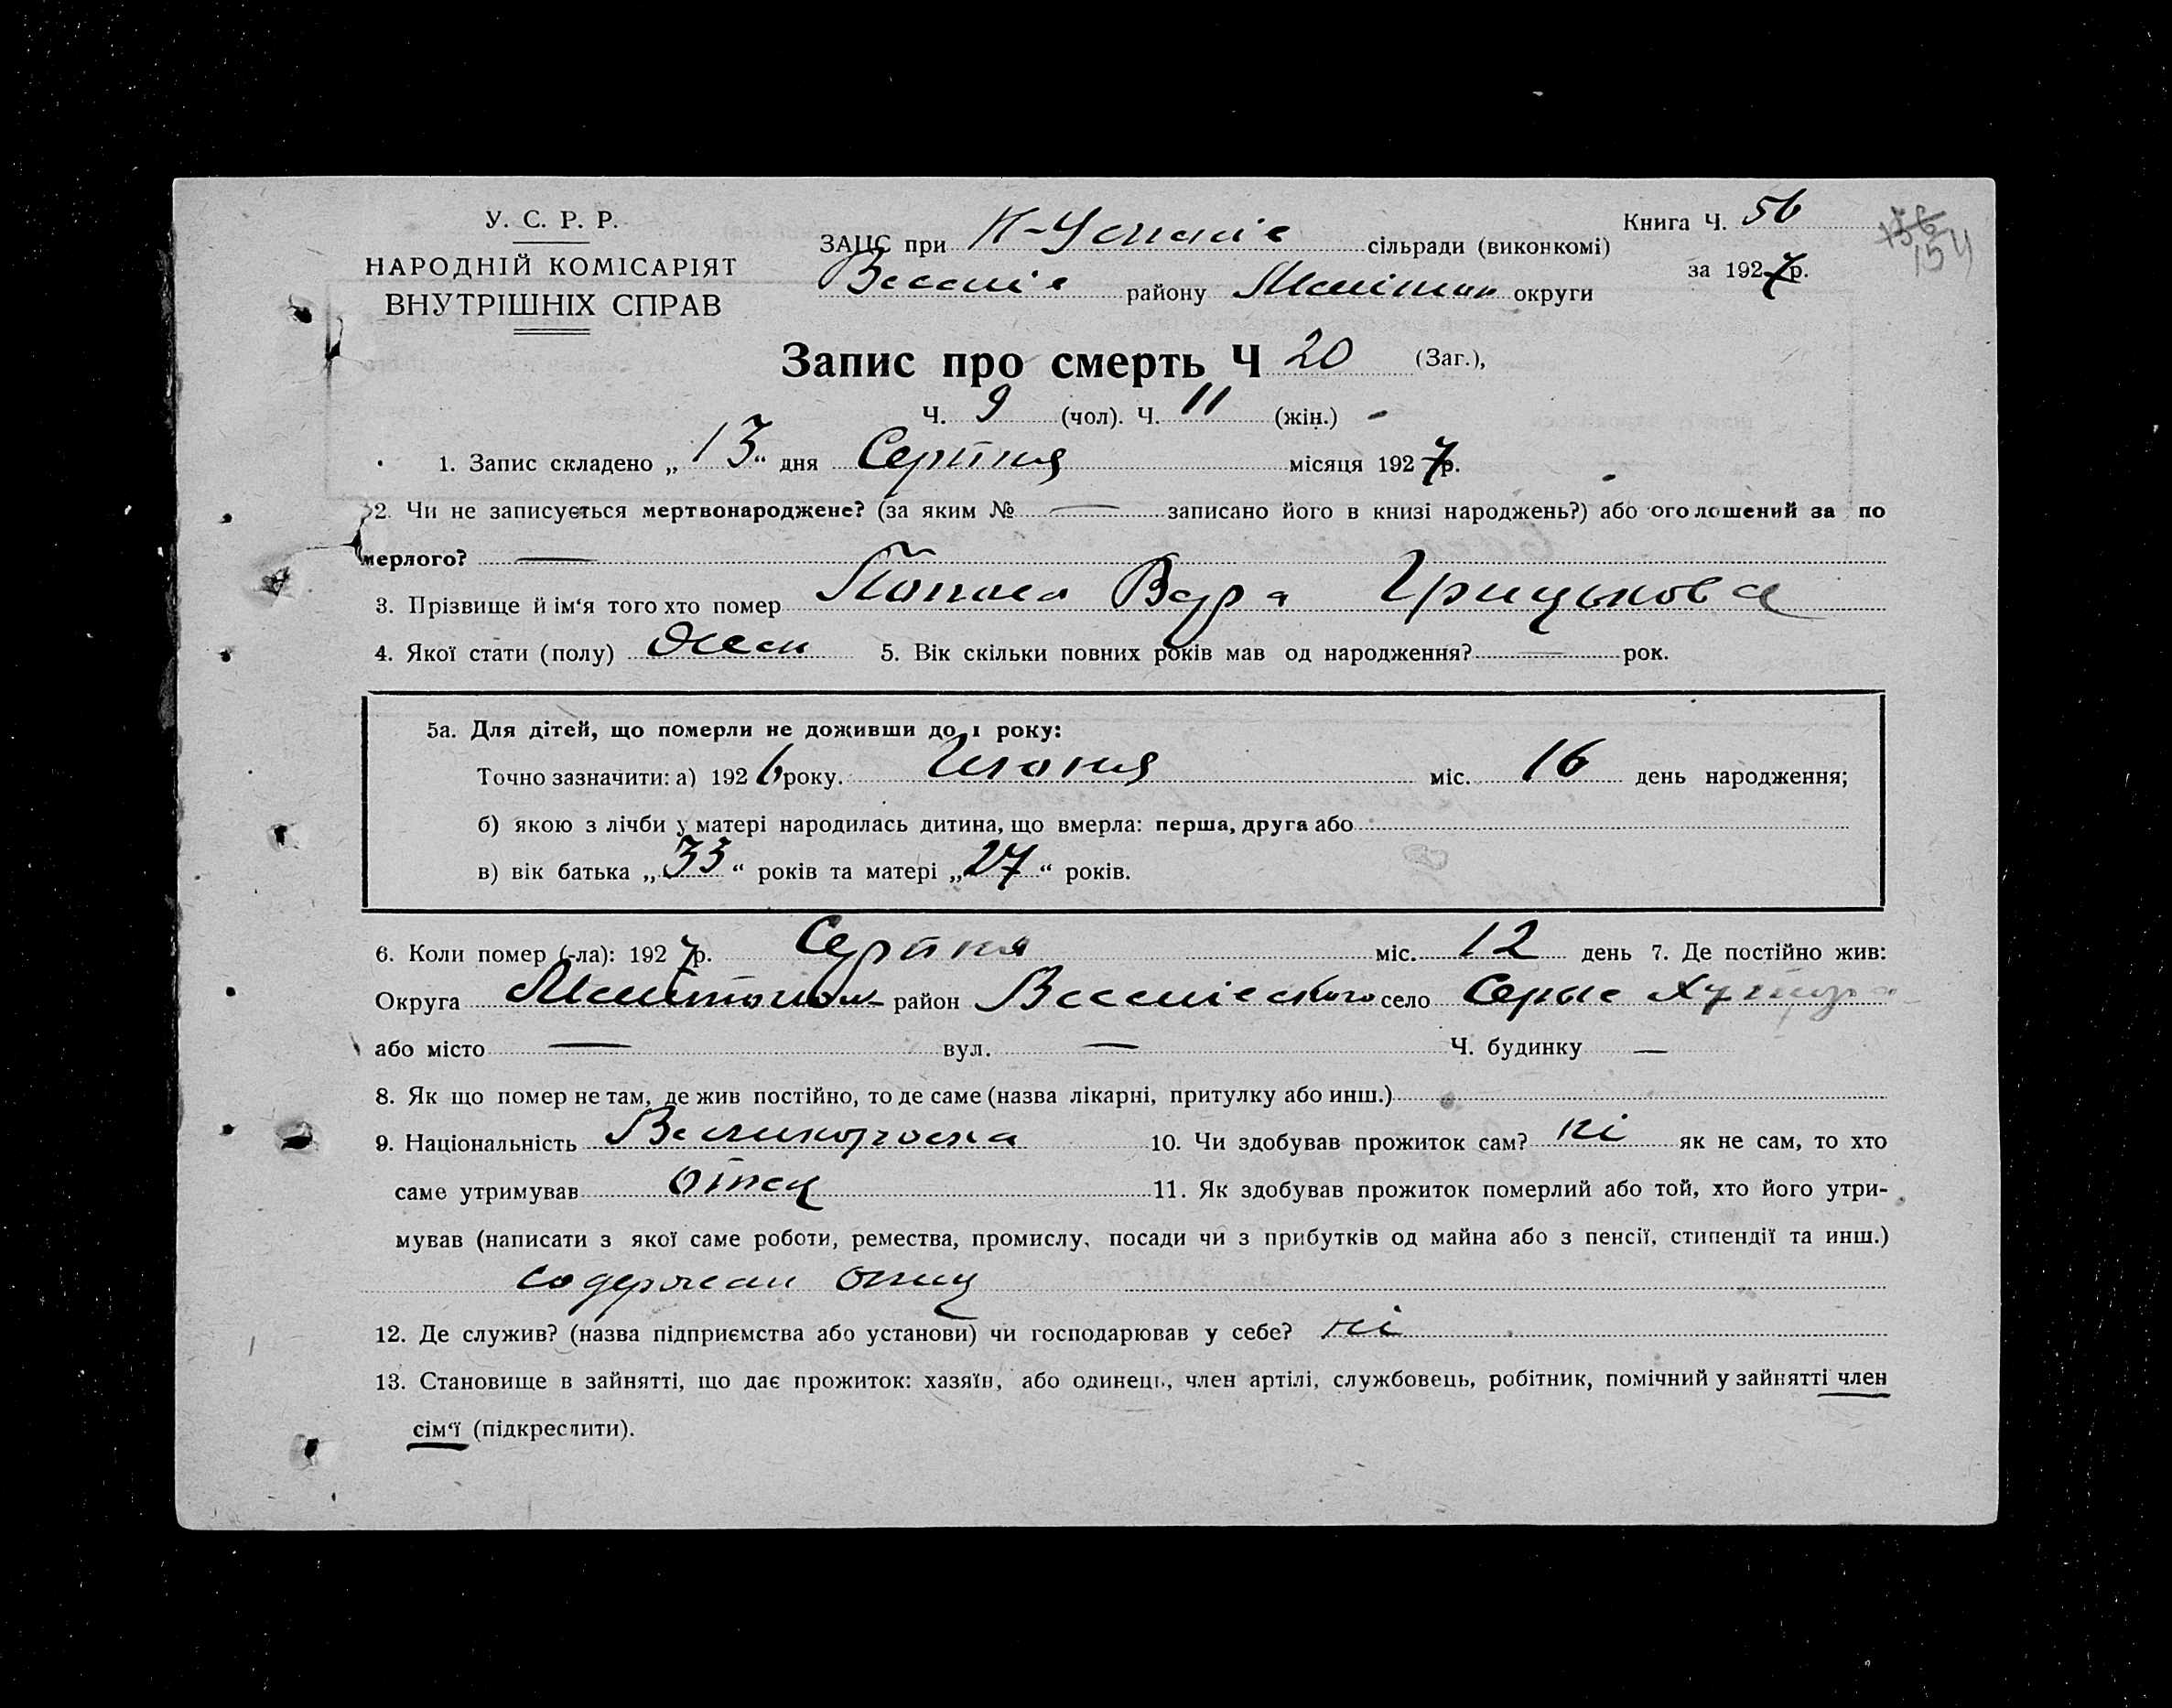 У. С. Р. Р.
НАРОДНІЙ КОМІСАРІЯТ
ВНУТРІШНІХ СПРАВ
ЗАЦС при сільради (виконкомі)
району округи
Книга Ч. 56
за 1927 р.
154
Запис про смерть Ч 20 (Заг.),
Ч. 9 (чол). Ч. 11 (жін.) -
1. Запис складено „13“ дня Серпня місяця 1927 р.
2. Чи не записується мертвонароджене? (за яким № — записано його в книзі народжень?) або оголошений за по
мерлого? —
3. Прізвище й ім‘я того хто помер Вера Грицькова
4. Якої стати (полу) Жен 5. Вік скільки повних років мав од народження? — рок.
5а. Для дітей, що померли не доживши до 1 року:
Точно зазначити: а) 1926 року. Июня міс. 16 день народження;
б) якою з лічби у матері народилась дитина, що вмерла: перша, друга або
в) вік батька „33“ років та матері „27“ років.
6. Коли помер (-ла): 1927 р. Серпня міс. 12 день 7. Де постійно жив:
Округа район село Серые Хутора
або місто — вул. — Ч. будинку —
8. Як що помер не там, де жив постійно, то де саме (назва лікарні, притулку або инш.)
9. Національність Великороска 10. Чи здобував прожиток сам? ні як не сам, то хто
саме утримував отец 11. Як здобував прожиток померлий або той, хто його утри-
мував (написати з якої саме роботи, ремества, промислу, посади чи з прибутків од майна або з пенсії, стипендії та инш.)
содержал отец
12. Де служив? (назва підприємства або установи) чи господарював у себе? ні
13. Становище в зайнятті, що дає прожиток: хазяїн, або одинець, член артілі, службовець, робітник, помічний у зайнятті член
сім‘ї (підкреслити).